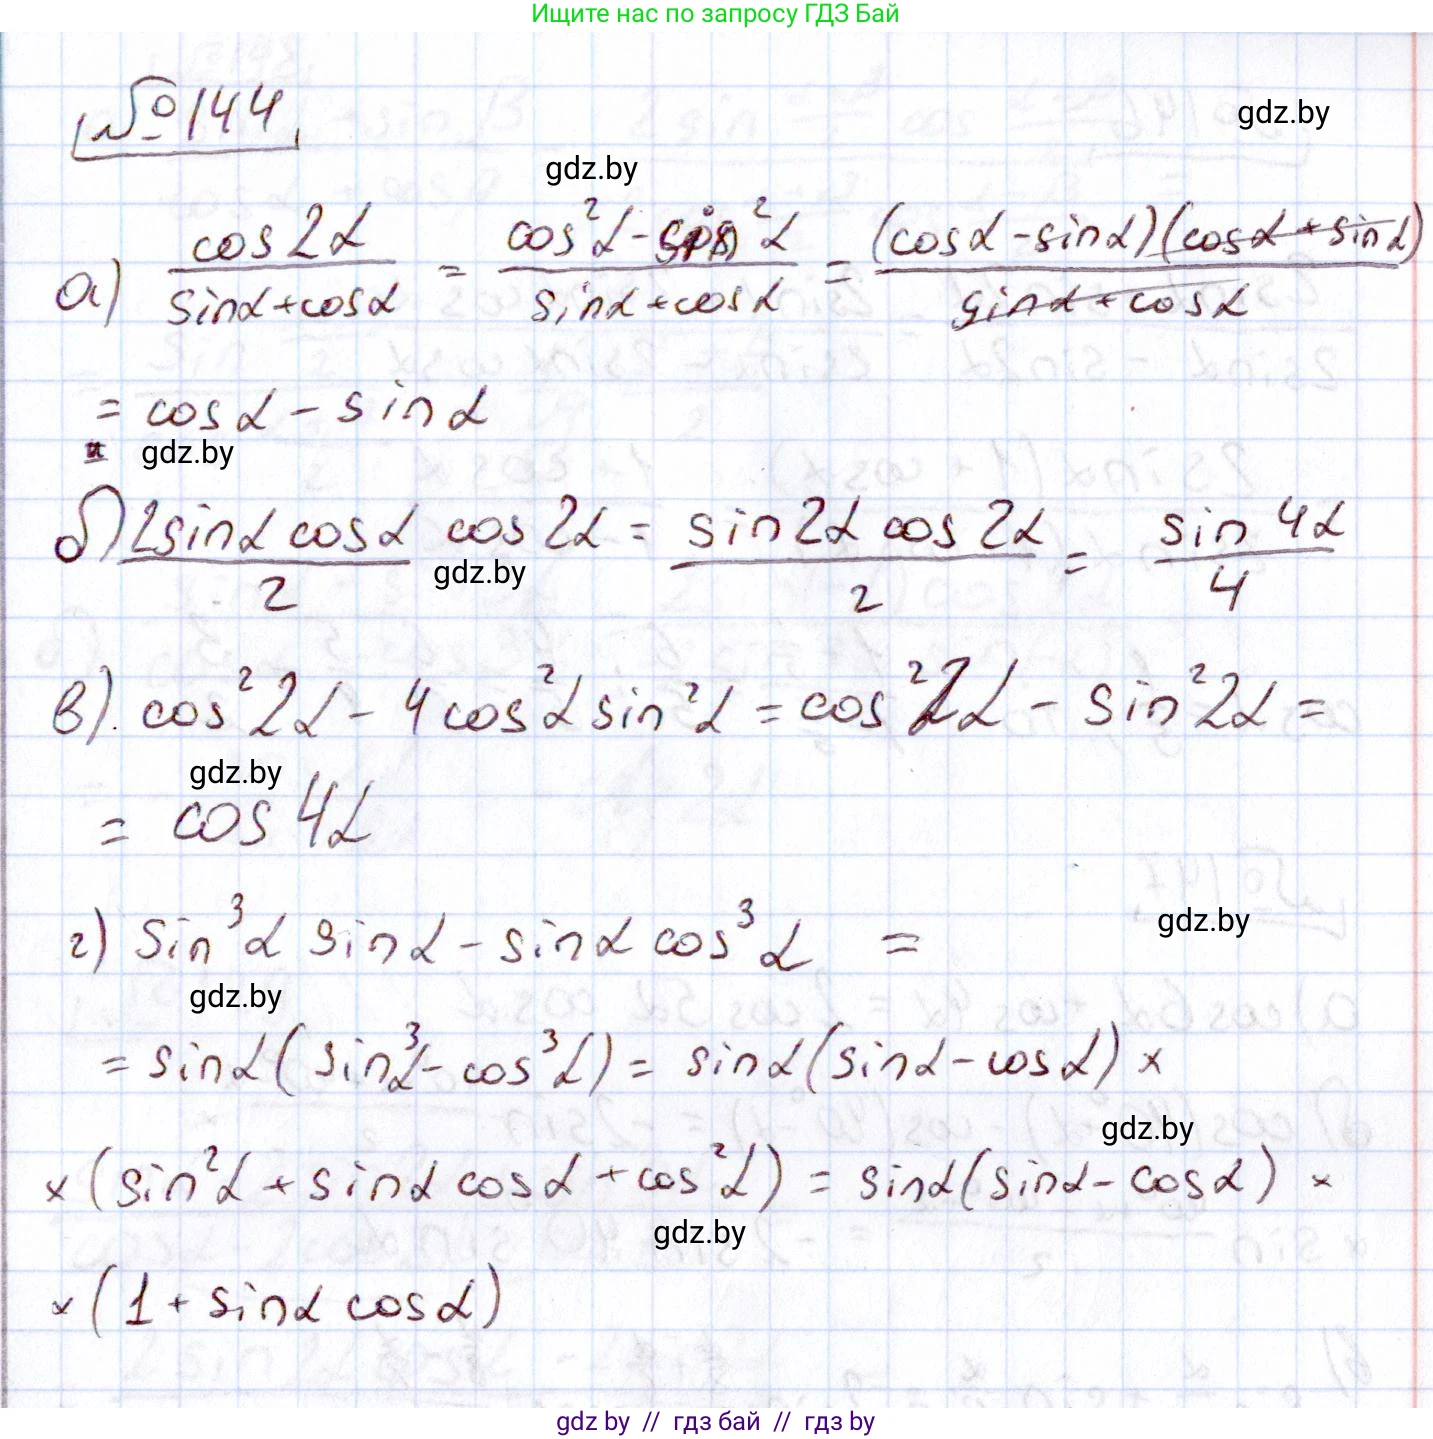 Ищите нас по запросу ГДЗ Бай
№144
gdz.by
gdz.by
а) cos2α / (sinα+cosα) = (cos²α - sin²α) / (sinα+cosα) = (cosα - sinα)(cosα + sinα) / (sinα + cosα)
= cosα - sinα
gdz.by
б) 2sinα cosα / 2 cos 2α = sin2α cos 2α / 2 = sin 4α / 4
gdz.by
в). cos²2α - 4cos²α sin²α = cos²2α - sin²2α =
gdz.by
= cos 4α
г) sin³α sinα - sinα cos³α =
gdz.by
gdz.by
= sinα(sin³α - cos³α) = sinα(sinα - cosα) ×
gdz.by
× (sin²α + sinα cosα + cos²α) = sinα(sinα - cosα) ×
gdz.by
× (1 + sinα cosα)
gdz by // гдз бай // гдз by